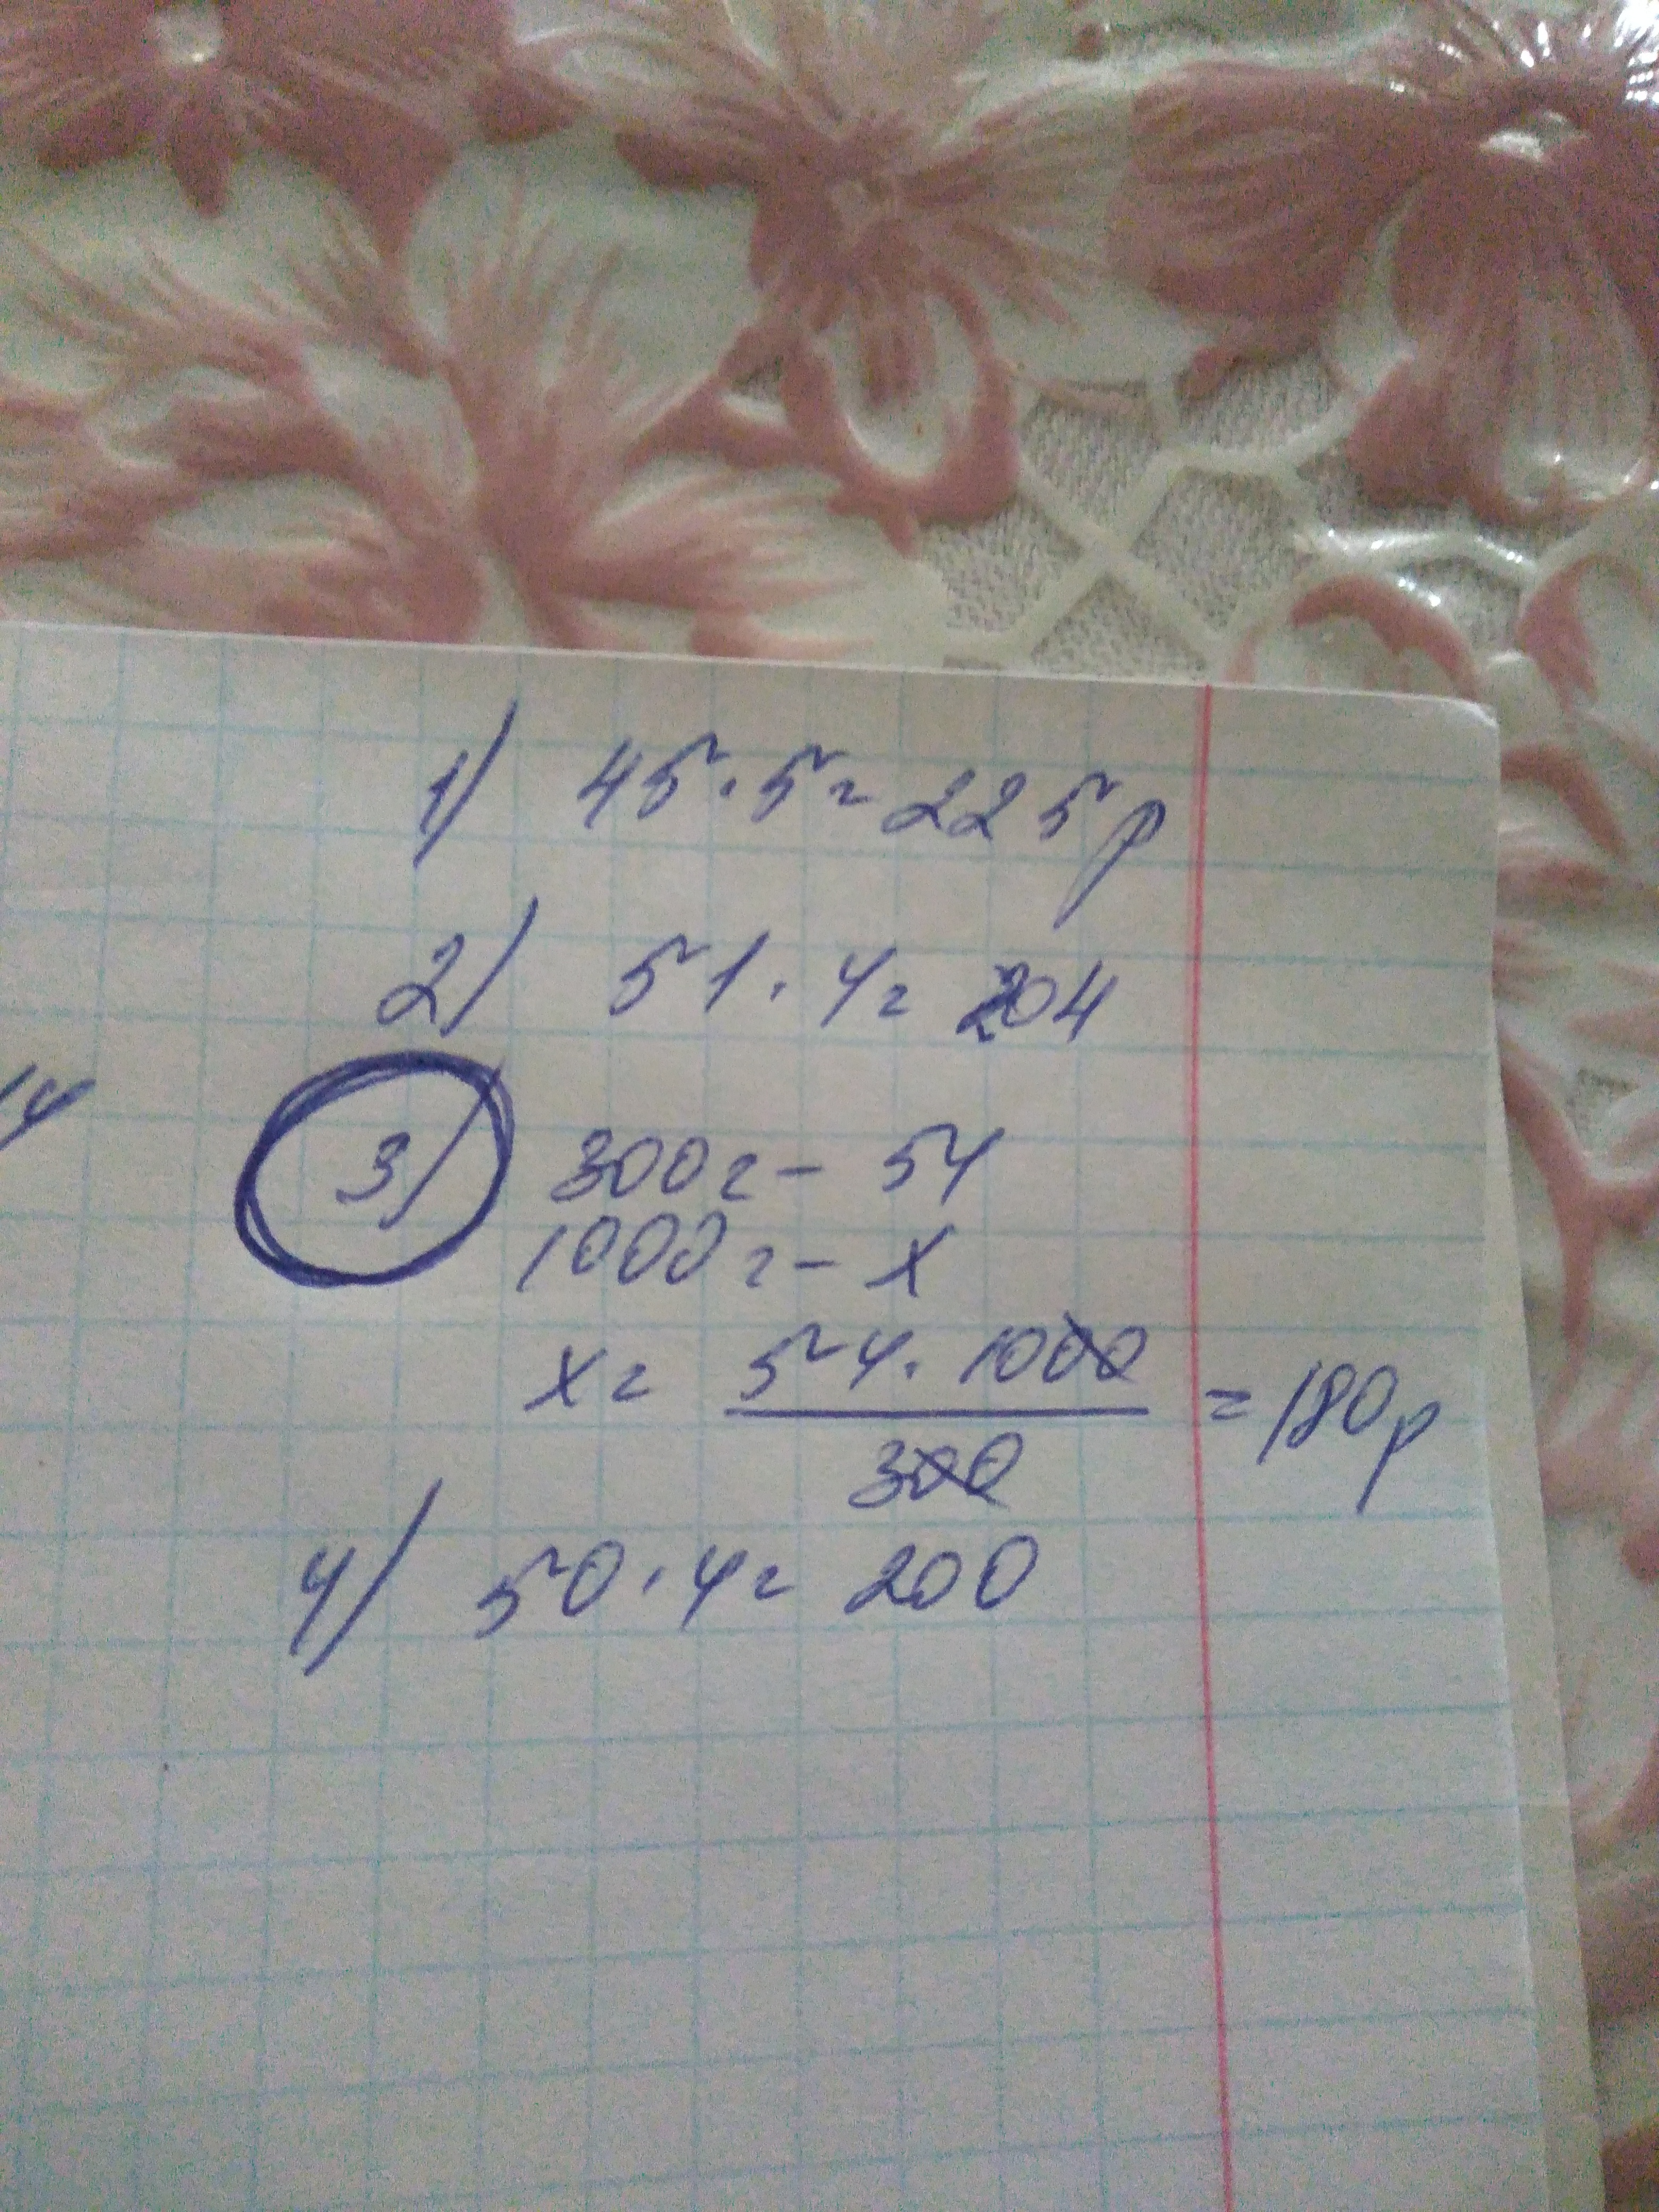 1) 45·5=225р
2) 51·4=204
14
3) 300г- 54
1000г- х
х= 54·1000
300
=180р
4) 50·4= 200